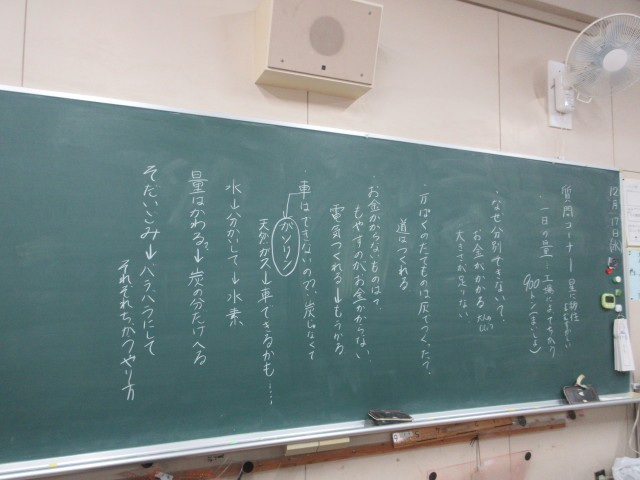 12月17日(火)
質問コーナー
一日の量 工場によってちがう
900トン(まいにち)
・なぜ分別できないで、
お金がかかる
大きさが足りない
道はつくれる
・お金かからないものは?
もやすのがお金かからない、
電気つくれる→もうかる
・車はできないので?炭じゃなくて
ガソリン
天然ガス→車できるかも…
水→分かいして→水素
量はかわる?→炭の分だけへる
そだいごみ→バラバラにして
それぞれちがうやり方